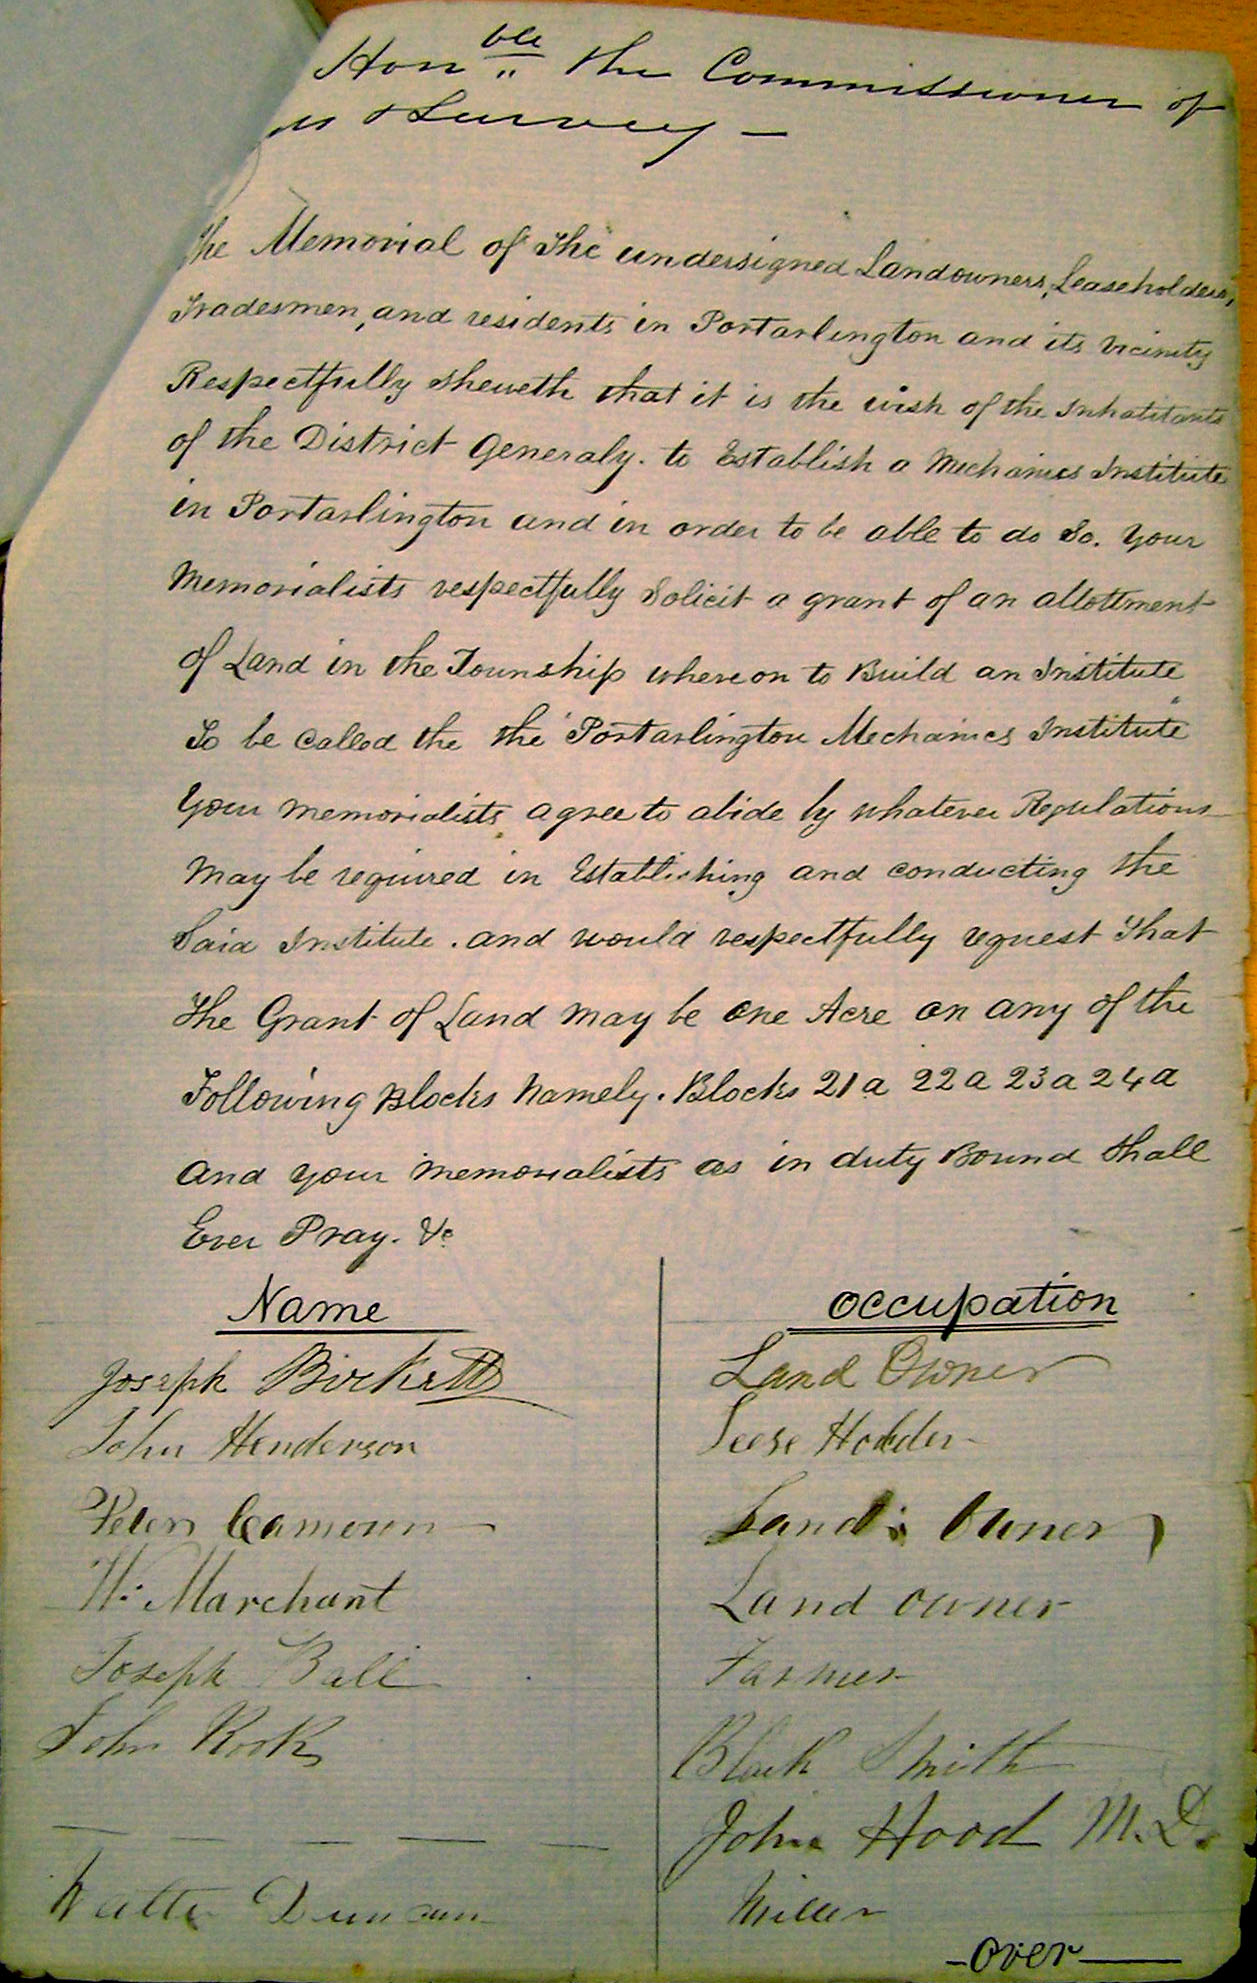 Honble the Commissioner of
& Survey —
the Memorial of the undersigned Landowners, Leaseholders,
Tradesmen, and residents in Portarlington and its vicinity
Respectfully sheweth that it is the wish of the Inhabitants
of the District Generaly. to Establish a Mechanics Institute
in Portarlington and in order to be able to do So. your
Memorialists respectfully Solicit a grant of an allottment
of Land in the Township whereon to Build an Institute
To be called the the "Portarlington Mechanics Institute"
Your memorialists agree to abide by whatever Regulations
May be required in Establishing and conducting the
Said Institute. and would respectfully request that
the Grant of Land may be one Acre on any of the
Following Blocks Namely. Blocks 21a 22a 23a 24a
and your memorialists as in duty Bound Shall
Ever Pray. &c
Name Occupation
Joseph Birkett Land Owner
John Henderson Leese Holder
Peter Land Owner
W. Marchant Land owner
Joseph Ball Farmer
John Rook Black Smith
— — — — — John Hood M.D.
Walter Duncan Miller
— over —